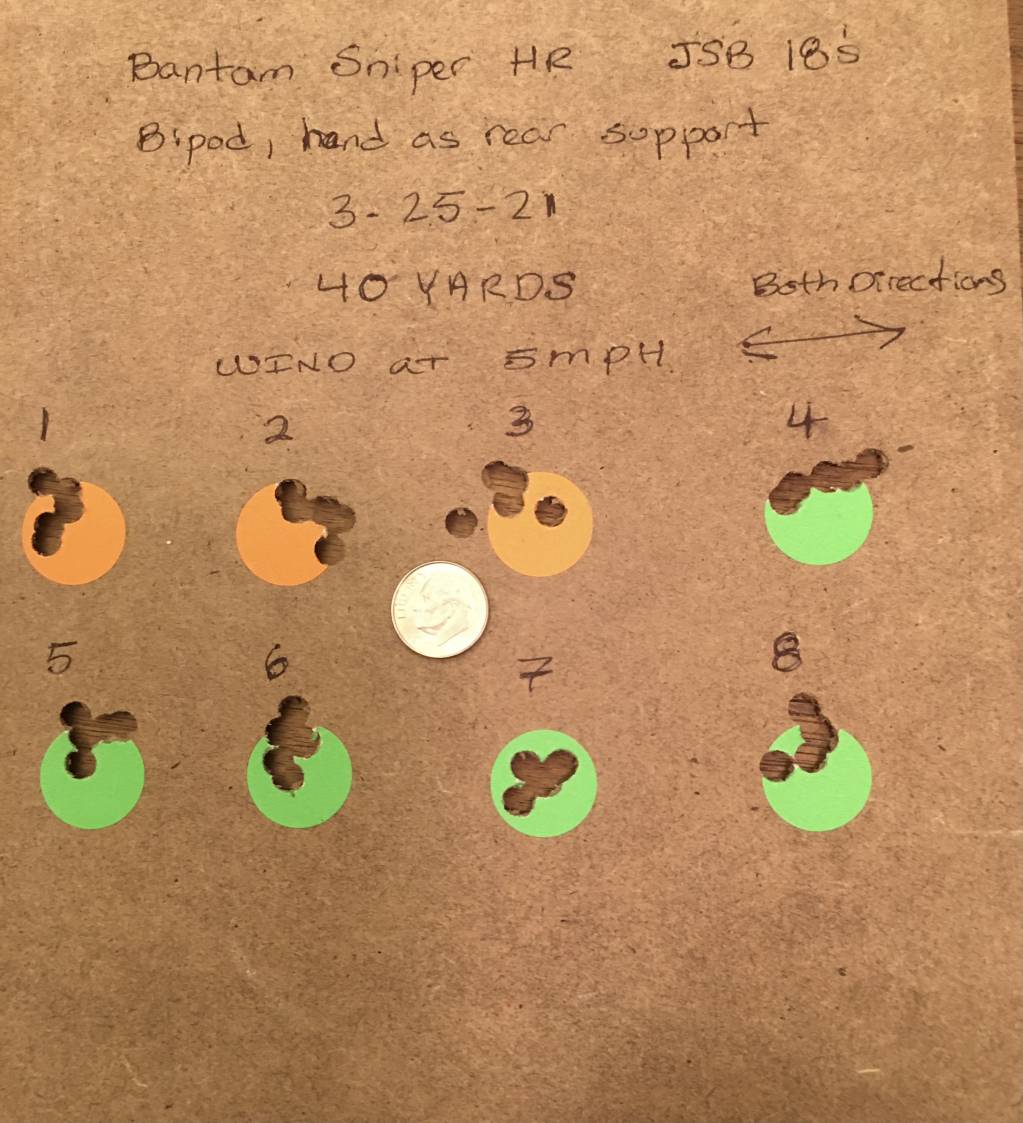 Bantam Sniper HR JSB 18's
Bipod, hand as rear support
3-25-21
40 YARDS
Both Directions
WIND at 5mpH
1 2 3 4
5 6 7 8